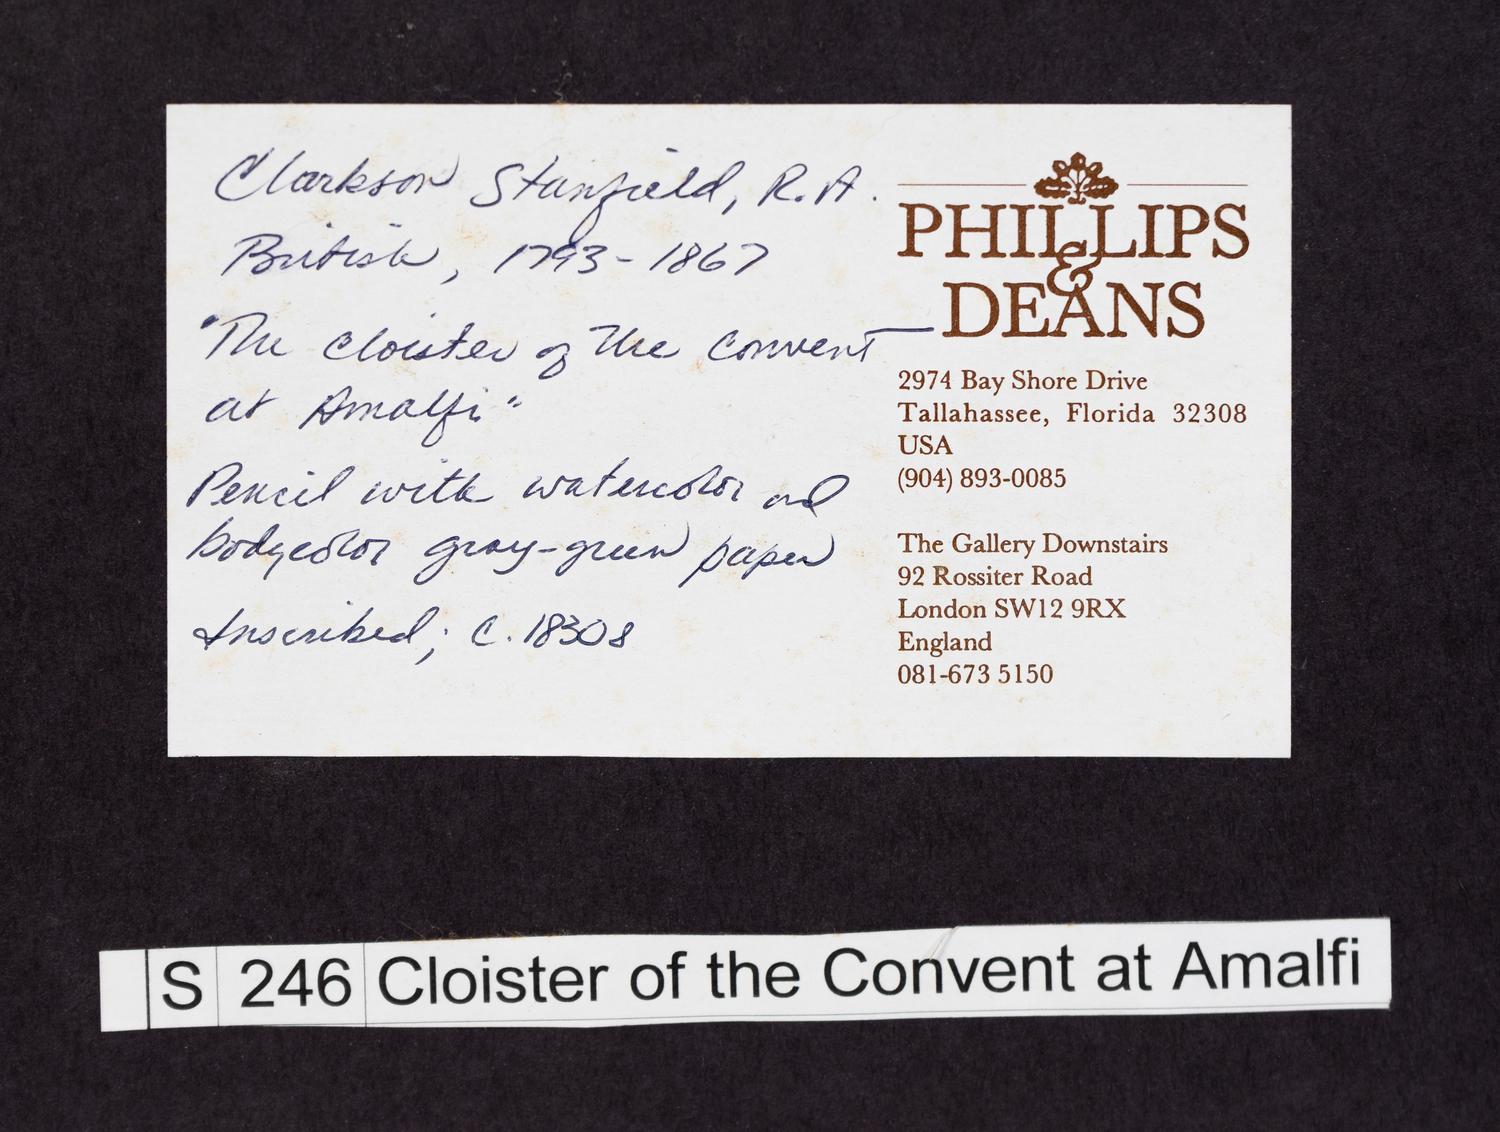 Clarkson Stanfield, R.A.
British, 1793-1867
"The Cloister of the Convent
at Amalfi"
Pencil with watercolor and
bodycolor gray-green paper
Inscribed; c. 1830s
PHILLIPS
&
DEANS
2974 Bay Shore Drive
Tallahassee, Florida 32308
USA
(904) 893-0085
The Gallery Downstairs
92 Rossiter Road
London SW12 9RX
England
081-673 5150
S 246 Cloister of the Convent at Amalfi